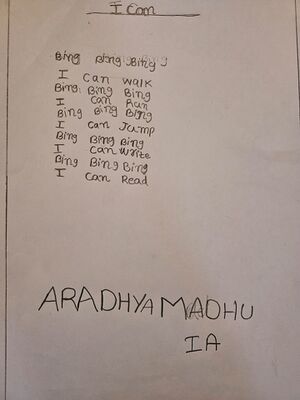 I Can
Bing Bing Bing
I Can Walk
Bing Bing Bing
I Can Run
Bing Bing Bing
I Can Jump
Bing Bing Bing
I Can Write
Bing Bing Bing
I Can Read
ARADHYA MADHU
IA